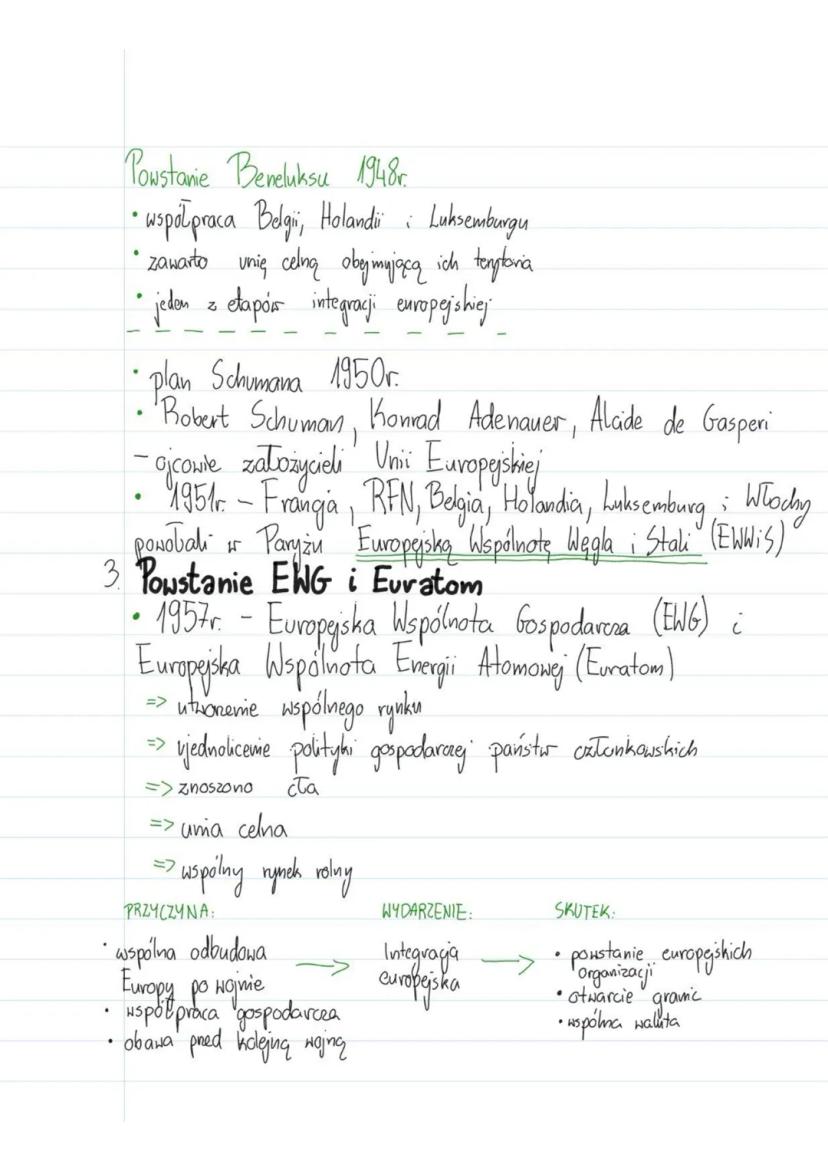 Powstanie Beneluksu 1948r.
• współpraca Belgii, Holandii i Luksemburgu
• zawarto unię celną obejmującą ich terytoria
• jeden z etapów integracji europejskiej
• plan Schumana 1950r.
• Robert Schuman, Konrad Adenauer, Alcide de Gasperi
- ojcowie założycieli Unii Europejskiej
• 1951r. - Francja, RFN, Belgia, Holandia, Luksemburg i Włochy
powołali w Paryżu Europejską Wspólnotę Węgla i Stali (EWWiS)
3. Powstanie EWG i Euratom
• 1957r. - Europejska Wspólnota Gospodarcza (EWG) i
Europejska Wspólnota Energii Atomowej (Euratom)
=> utworzenie wspólnego rynku
=> ujednolicenie polityki gospodarczej państw członkowskich
=> znoszono cła
=> unia celna
=> wspólny rynek rolny
PRZYCZYNA: WYDARZENIE: SKUTEK:
• wspólna odbudowa
Europy po wojnie
• współpraca gospodarcza
• obawa przed kolejną wojną
Integracja
europejska
• powstanie europejskich
organizacji
• otwarcie granic
• wspólna waluta